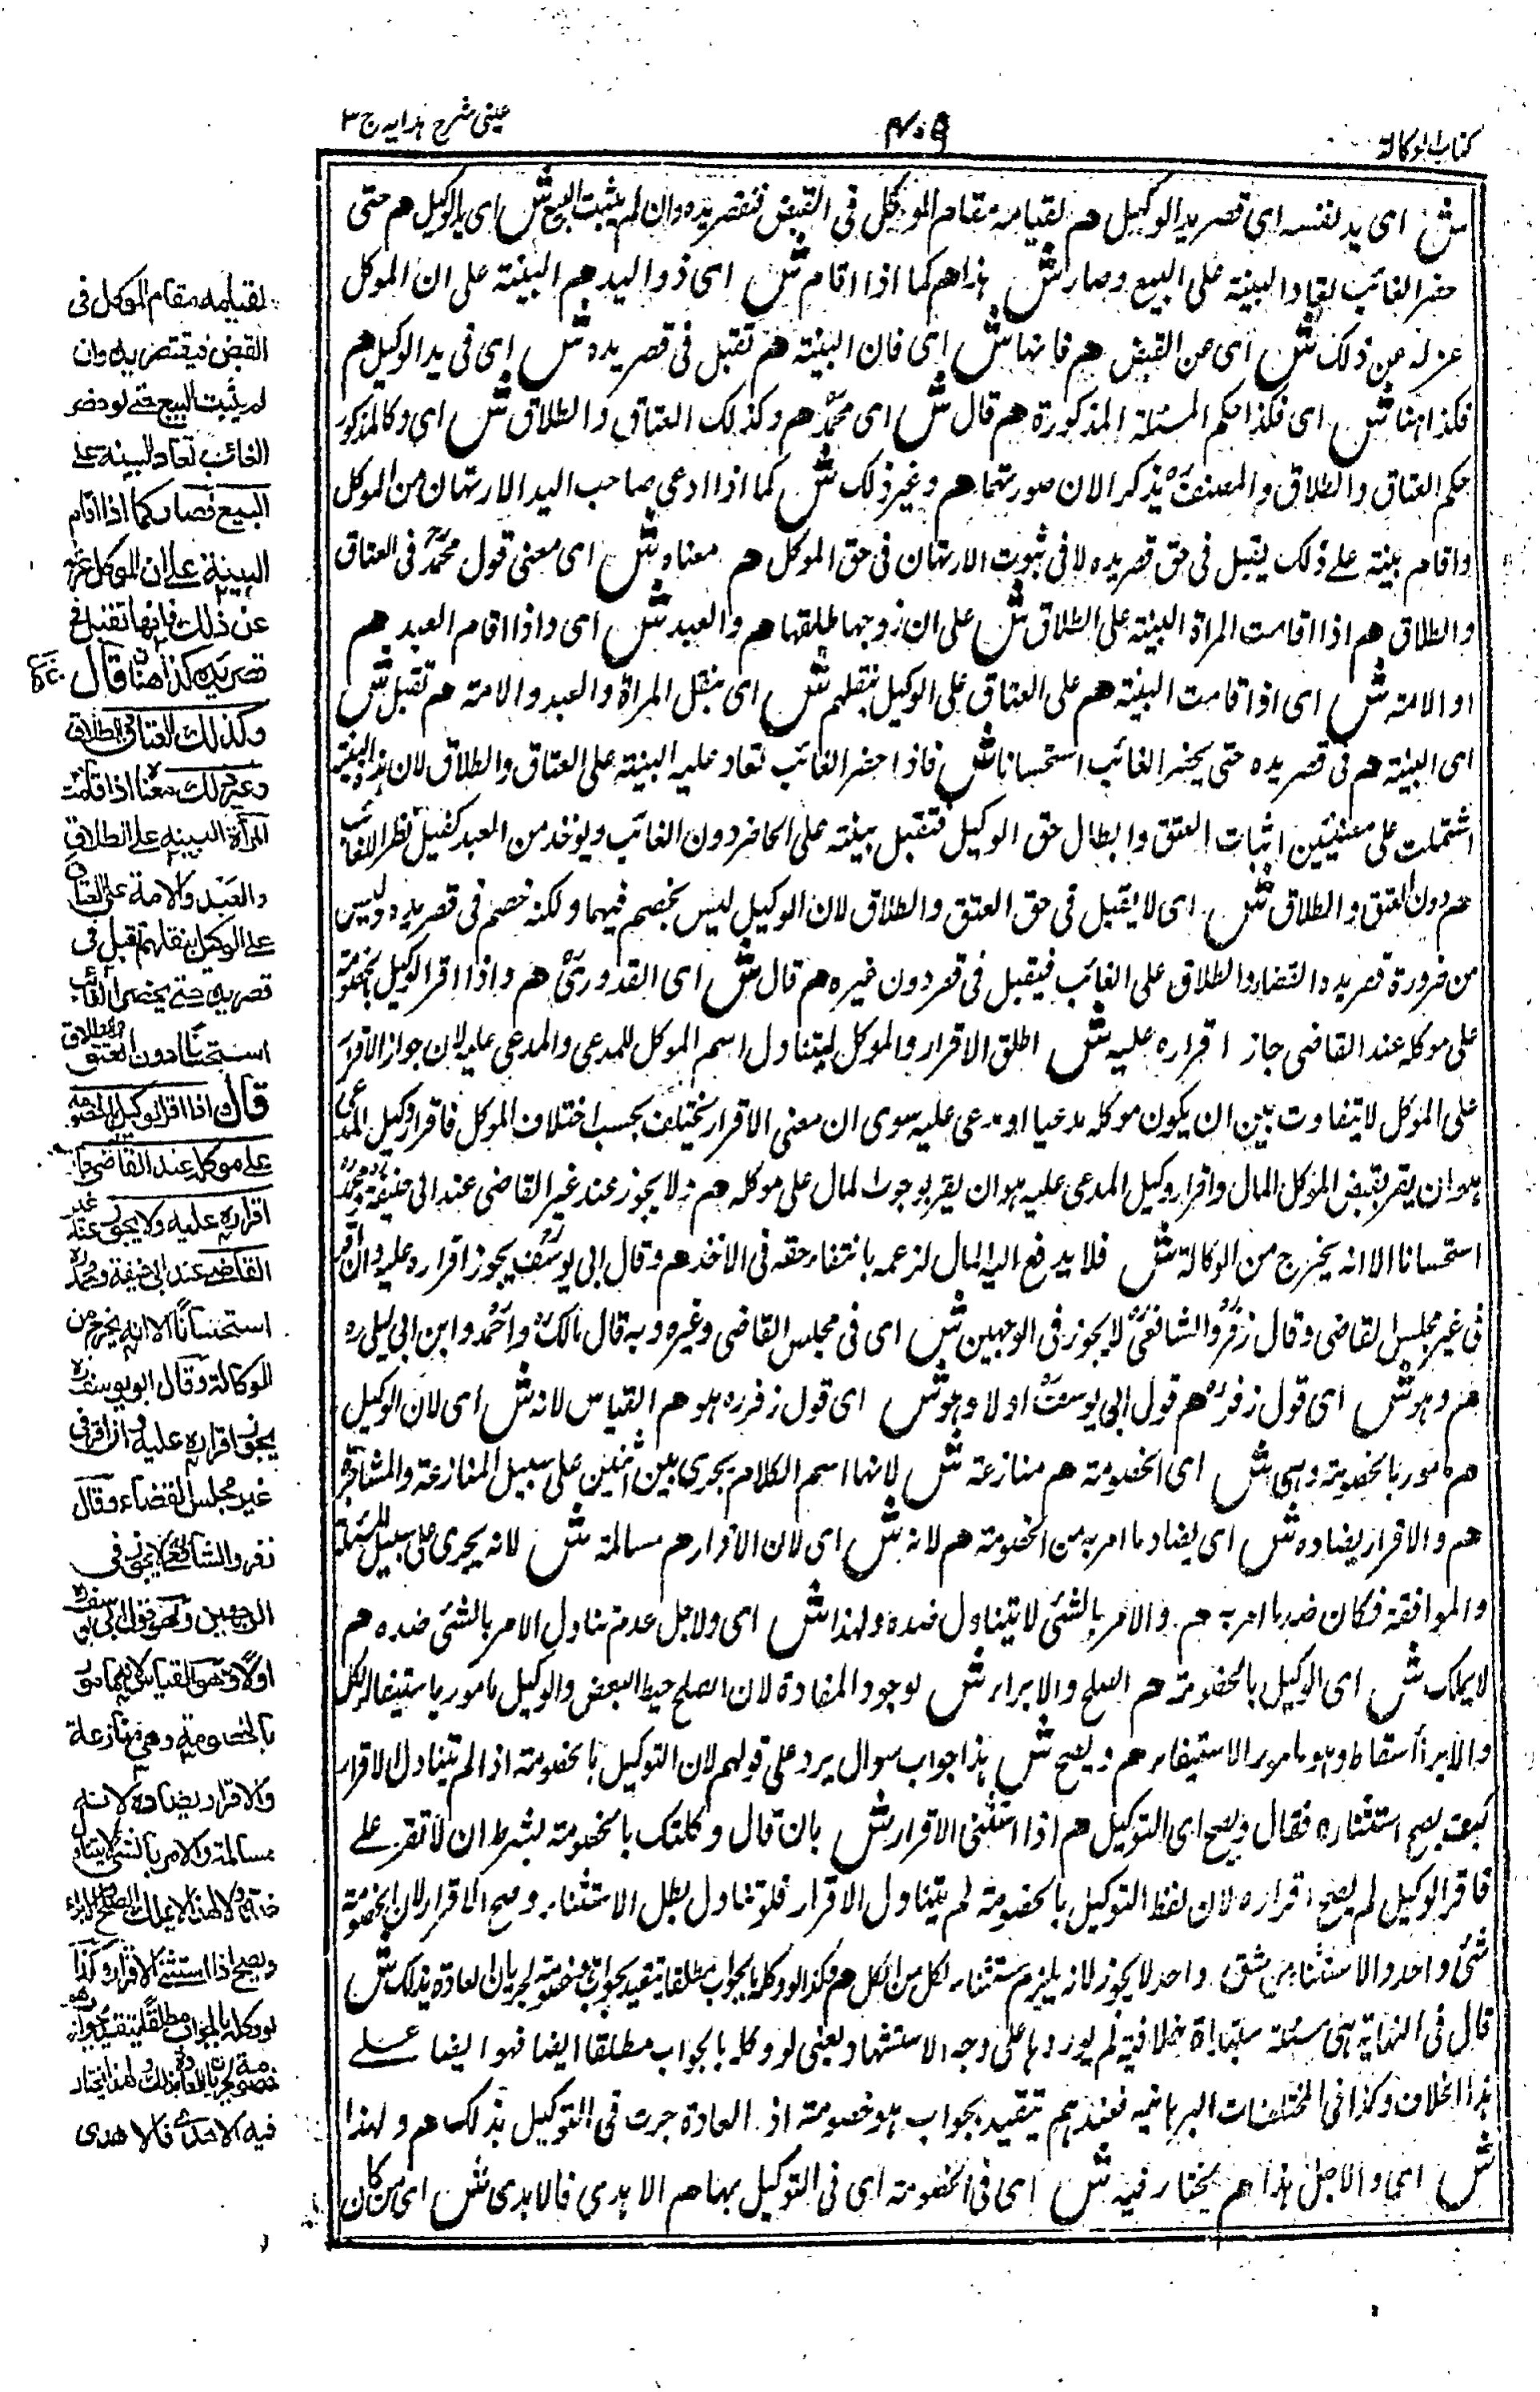 كتاب الوكالة
٤٠٩
عینی شرح ہدایہ ج ٣
ش ای ید نفسه ای قصر ید الوکیل هم لقیامه مقام الموکل فی القبض فتقصر یده وان لم یثبت البیع ش ای ید الوکیل هم حتی
حضر الغائب تعاد البینة علی البیع وصار ش هذا هم کما اذا اقام ش ای ذو الید هم البینة علی ان الموکل
عزله عن ذلک ش ای عن القبض هم فانها ش ای فان البینة هم تقبل فی قصر یده ش ای فی ید الوکیل هم
فکذا هنا ش ای فکذا حکم المسئلة المذکورة هم قال ش ای محمد هم وکذلک العتاق والطلاق ش ای وکالمذکور
حکم العتاق والطلاق والمصنف یذکر الان صورتهما هم وغیر ذلک ش کما اذا ادعی صاحب الید الارتهان من الموکل
واقام بینة علی ذلک یقبل فی حق قصر یده لا فی ثبوت الارتهان فی حق الموکل هم معناه ش ای معنی قول محمد فی العتاق
والطلاق هم اذا اقامت المراة البینة علی الطلاق ش علی ان زوجها طلقها هم والعبد ش ای واذا اقام العبد هم
او الامة ش ای اذا قامت البینة هم علی العتاق علی الوکیل بنقلهم ش ای بنقل المراة والعبد والامة هم تقبل ش
ای البینة هم فی قصر یده حتی یحضر الغائب استحسانا ش فاذا حضر الغائب تعاد علیه البینة علی العتاق والطلاق لان هذه البینة
اشتملت علی معنیین اثبات العتق وابطال حق الوکیل فتقبل بینة علی الحاضر دون الغائب ویوخذ من العبد کفیل نظرا للغائب
هم دون العتق والطلاق ش ای لا یقبل فی حق العتق والطلاق لان الوکیل لیس بخصم فیهما ولکنه خصم فی قصر یده ولیس
من ضرورة قصر یده القضاء والطلاق علی الغائب فیقبل فی قصر دون غیره هم قال ش ای القدوری هم واذا اقر الوکیل بالخصومة
علی موکله عند القاضی جاز اقراره علیه ش اطلق الاقرار والموکل لیتناول اسم الموکل للمدعی والمدعی علیه لان جواز الاقرار
علی الموکل لا تتفاوت بین ان یکون موکله مدعیا او مدعی علیه سوی ان معنی الاقرار یختلف بحسب اختلاف الموکل فاقرار وکیل المدعی
هو ان یقر بقبض الموکل المال واقرار وکیل المدعی علیه هو ان یقر بوجوب المال علی موکله هم ولا یجوز عند غیر القاضی عند ابی حنیفة ومحمد
استحسانا الا انه یخرج من الوکالة ش فلا یدفع الیه المال لزعمه بانتفاء حقه فی الاخذ هم وقال ابی یوسف یجوز اقراره علیه وان اقر
فی غیر مجلس القاضی وقال زفر والشافعی لا یجوز فی الوجهین ش ای فی مجلس القاضی وغیره وبه قال مالک واحمد وابن ابی لیلی ره
هم وهو ش ای قول زفر هم قول ابی یوسف اولا وهو ش ای قول زفر ره هو هم القیاس لانه ش ای لان الوکیل
هم مامور بالخصومة وهی ش ای الخصومة هم منازعة ش لانها اسم الکلام یجری بین اثنین علی سبیل المنازعة والمشاجرة
هم والاقرار یضاده ش ای یضاد ما امر به من الخصومة هم لانه ش ای لان الاقرار هم مسالمة ش لانه یجری علی سبیل المسالمة
والموافقة فکان ضد ما امر به هم والامر بالشئی لا یتناول ضده ولهذا ش ای ولاجل عدم تناول الامر بالشئی ضده هم
لا یملک ش ای الوکیل بالخصومة هم الصلح والابراء ش لوجود المضادة لان الصلح حط البعض والوکیل مامور باستیفاء الکل
والابرا اسقاط وهو مامور الاستیفاء هم ویصح ش هذا جواب سوال یرد علی قولهم لان التوکیل بالخصومة اذا لم تناول الاقرار
کیف یصح استثناره فقال ویصح ای التوکیل هم اذا استثنی الاقرار ش بان قال وکلتک بالخصومة بشرط ان لا تقر علی
فاقر الوکیل لم یصح اقراره لان لفظ التوکیل بالخصومة لم یتناول الاقرار فلو تناول بطل الاستثناء وصح الاقرار لان الخصومة
شئی واحد والاستثناء من شئ واحد لا یجوز لانه یلزم استثناء الکل من الکل هم وکذا لو وکله بالجواب مطلقا یتقید بجواب هو خصومة لجریان العادة بذلک ش
قال فی النهایة هی مسئلة مبتداة خلافیة لم یوردها علی وجه الاستشهاد یعنی لو وکله بالجواب مطلقا ایضا فهو ایضا علی
هذا الخلاف وکذا فی المختلفات البرهانیة فعندهم یتقید بجواب هو خصومة اذ العادة جرت فی التوکیل بذلک هم ولهذا
ش ای والاجل هذا هم یختار فیه ش ای فی الخصومة ای فی التوکیل بها هم الاهدی فالاهدی ش ای من کان
لقیامه مقام الموکل فی
القبض فیقتصر یده وان
لم یثبت البیع حتے لو حضر
الغائب تعاد البینة علے
البیع فصار کما اذا اقام
البینة علے ان الموکل عزله
عن ذلک فانها تقبل فے
قصر یده کذا هنا قال
وکذلک العتاق والطلاق
وغیر ذلک معناه اذا اقامت
المرأة البینة علے الطلاق
والعبد والامة علے العتاق
علے الوکیل بنقلهم تقبل فی
قصر یده حتے یحضر الغائب
استحسانا دون العتق والطلاق
قال اذا اقر الوکیل بالخصومة
علے موکله عند القاضی جاز
اقراره علیه ولا یجوز عند غیر
القاضے عند ابی حنیفة ومحمد ره
استحسانًا الا انه یخرج من
الوکالة وقال ابو یوسف ره
یجوز اقراره علیه وان اقر فی
غیر مجلس القضاء وقال
زفر والشافعی لا یجوز فی
الوجهین وهو قول ابی یوسف ره
اولًا وهو القیاس لانه مامور
بالخصومة وهی منازعة
والاقرار یضاده لانه
مسالمة والامر بالشئی لا یتناول
ضده ولهذا لا یملک الصلح والابراء
ویصح اذا استثنے الاقرار وکذا
لو وکله بالجواب مطلقًا یتقید بجواب هو
خصومة لجریان العادة بذلک ولهذا یختار
فیه الاهدے فالاهدی